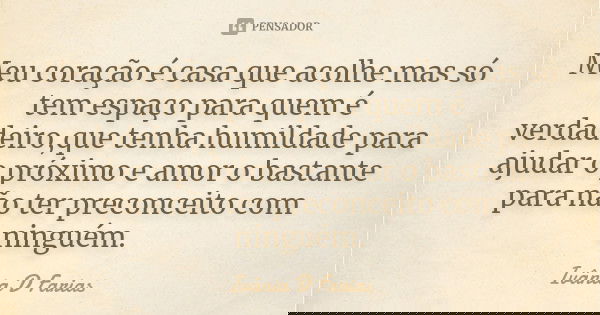 PENSADOR
Meu coração é casa que acolhe mas só
tem espaço para quem é
verdadeiro,que tenha humildade para
ajudar o próximo e amor o bastante
para não ter preconceito com
ninguém.
D Farias